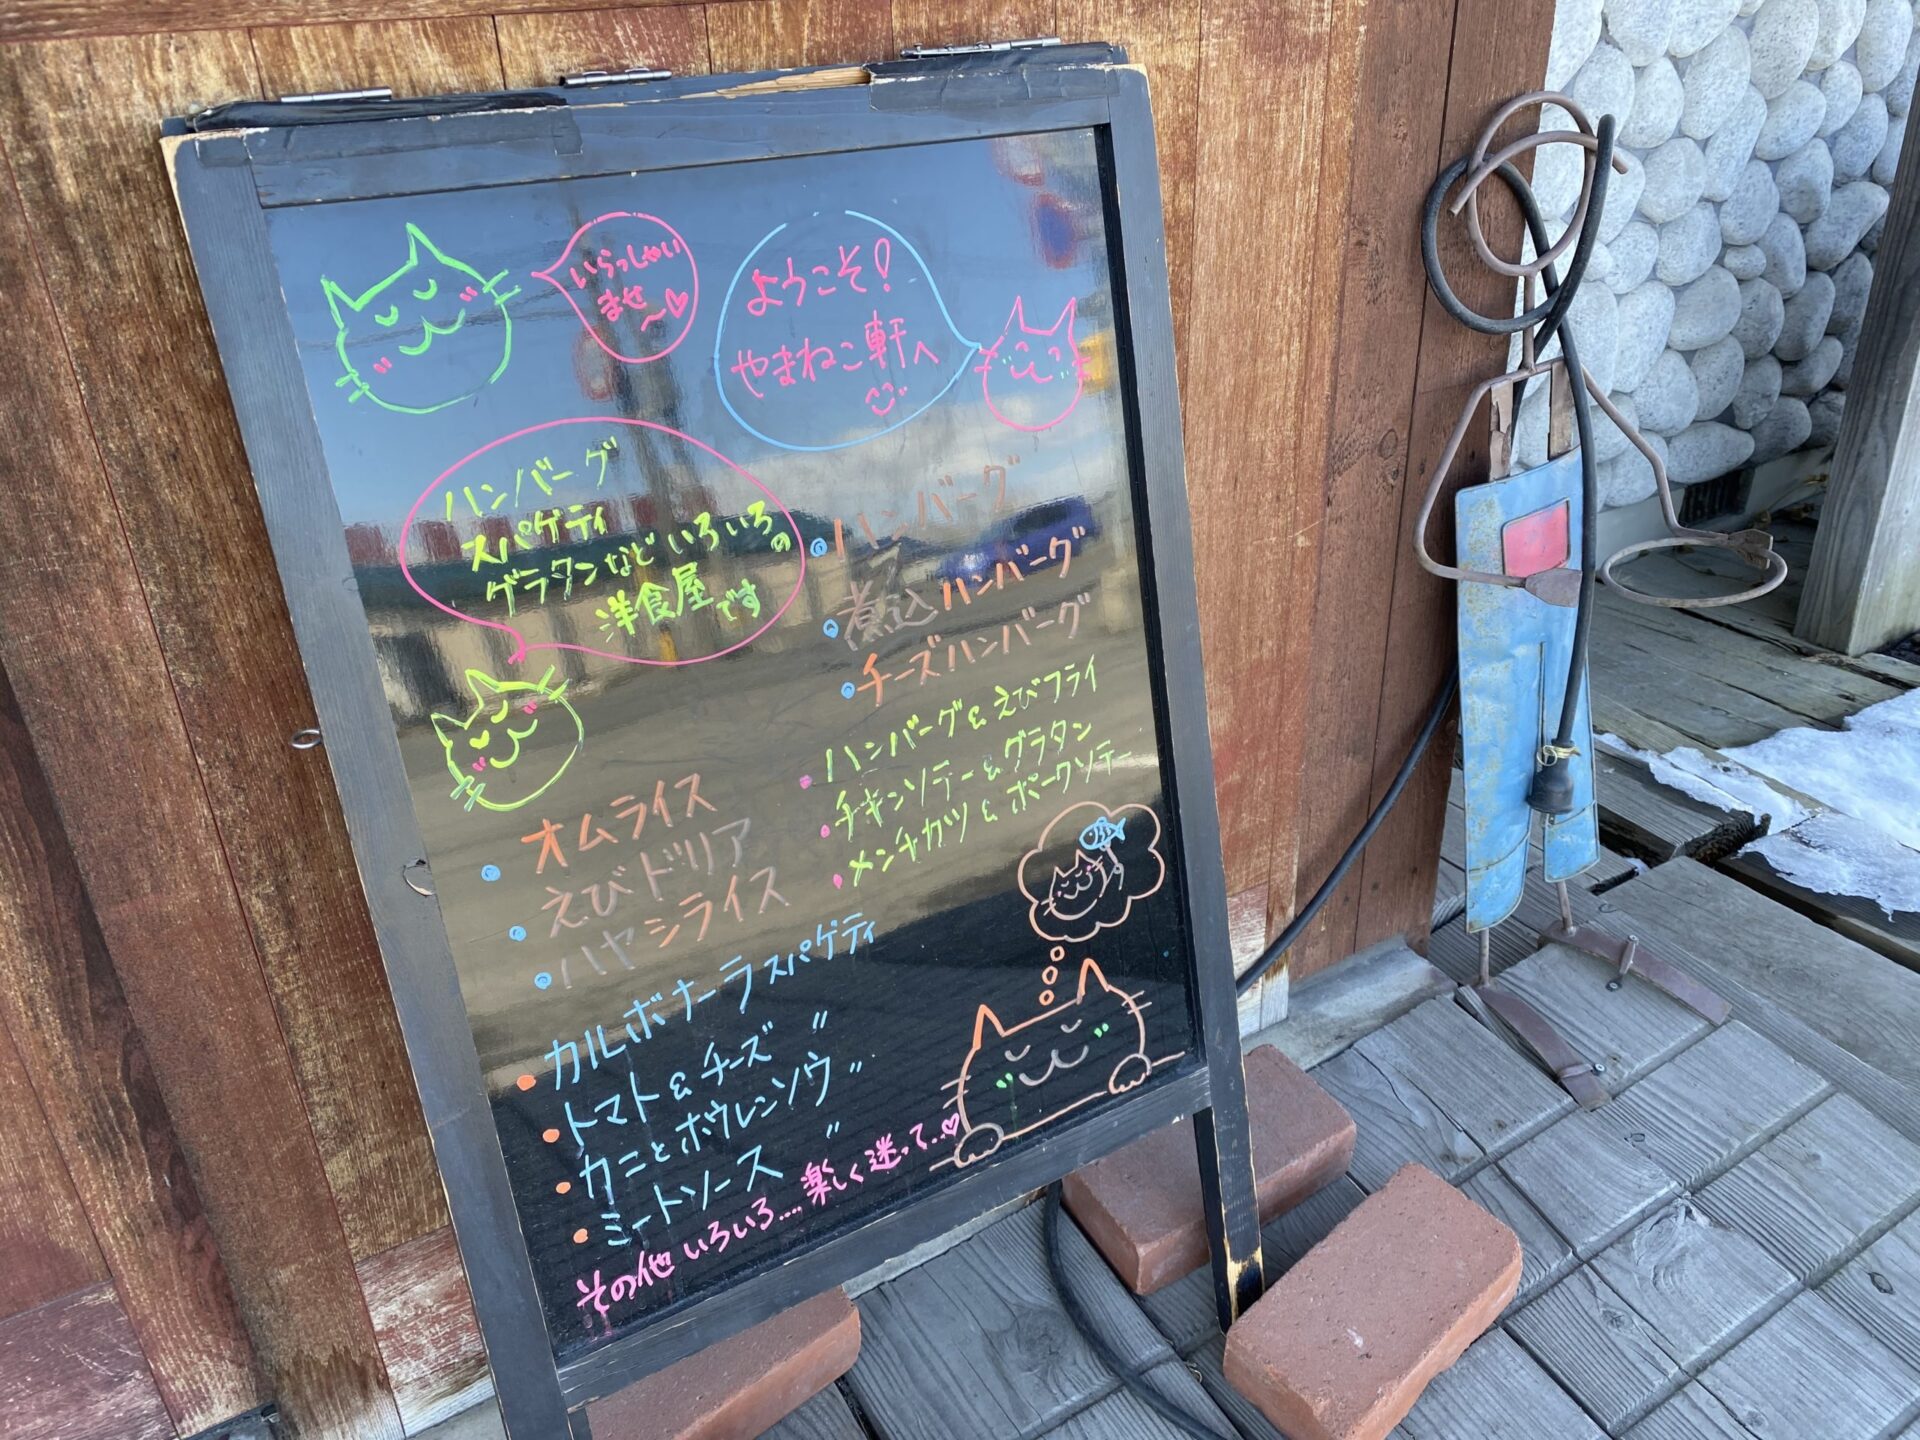 いらっしゃい
ませ〜♡
ようこそ!
やまねこ軒へ
ハンバーグ
スパゲティ
ゲラタンなどいろいろの
洋食屋です
・ハンバーグ
・煮込ハンバーグ
・チーズハンバーグ
・ハンバーグ&えびフライ
・チキンソテー&グラタン
・メンチカツ&ポークソテー
・オムライス
・えびドリア
・ハヤシライス
・カルボナーラスパゲティ
・トマト&チーズ 〃
・カニとホウレンソウ 〃
・ミートソース 〃
その他いろいろ....楽しく迷って...♡